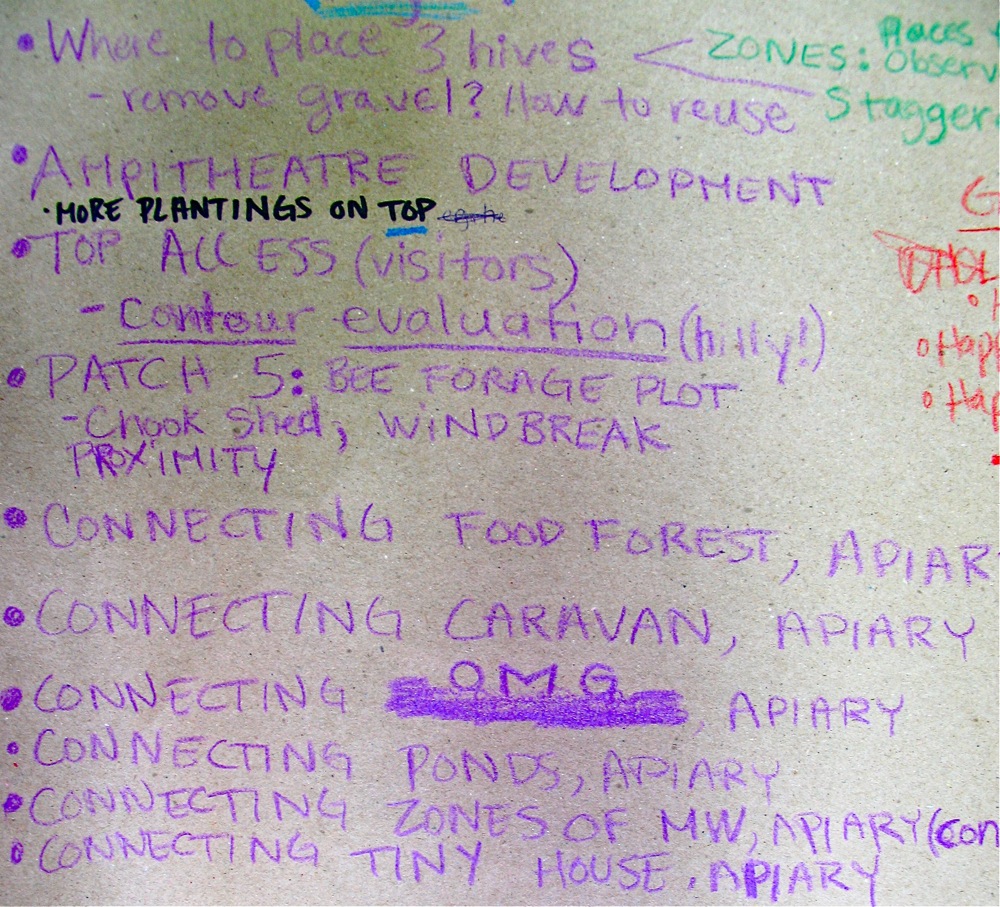 • Where to place 3 hives < ZONES: Places
Observ
- remove gravel? How to reuse Stagger
• AMPITHEATRE DEVELOPMENT
· MORE PLANTINGS ON TOP
• TOP ACCESS (visitors)
- Contour evaluation (hilly!)
• PATCH 5: BEE FORAGE PLOT
- Chook Shed, WINDBREAK
PROXIMITY
• CONNECTING FOOD FOREST, APIAR
• CONNECTING CARAVAN, APIARY
• CONNECTING OMG, APIARY
• CONNECTING PONDS, APIARY
• CONNECTING ZONES OF MW, APIARY (con
• CONNECTING TINY HOUSE, APIARY
G
• Hap
• Hap